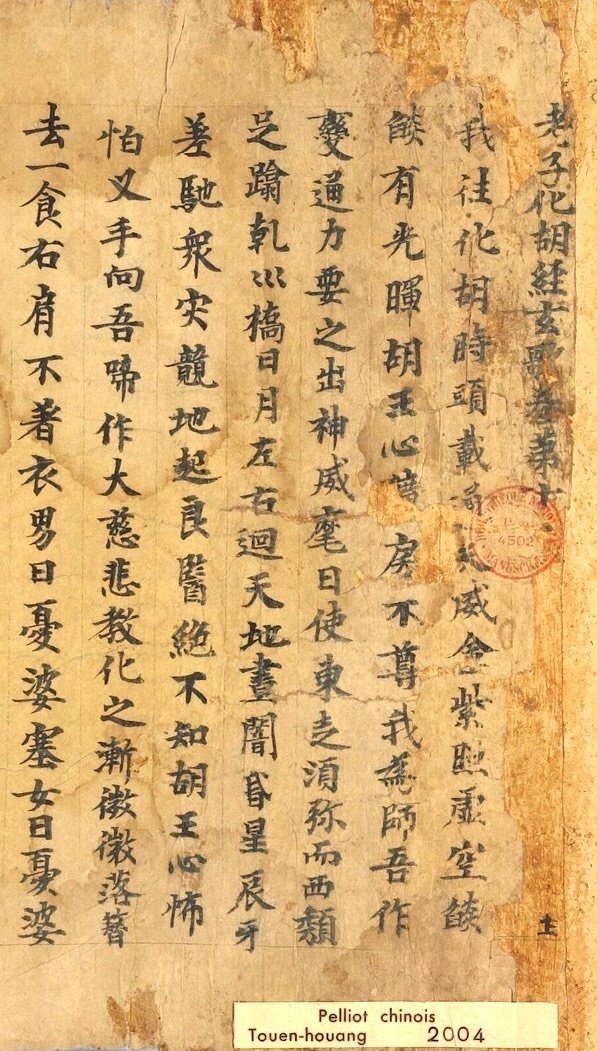 老子化胡経玄歌卷第十
我往化胡時頭載通天威金紫照虛空燄
燄有光暉胡王心不尊我為師吾作
變通力要之出神威麾日使東走須弥而西頽
足蹹乾巛橋日月左右迴天地晝闇昏星辰牙
差馳衆灾競地起良醫絶不知胡王心怖
怕叉手向吾啼作大慈悲教化之漸微微落簪
去一食右肩不著衣男曰憂婆塞女曰憂婆
土
4502
MANUSCRITS
Pelliot chinois
Touen-houang 2004